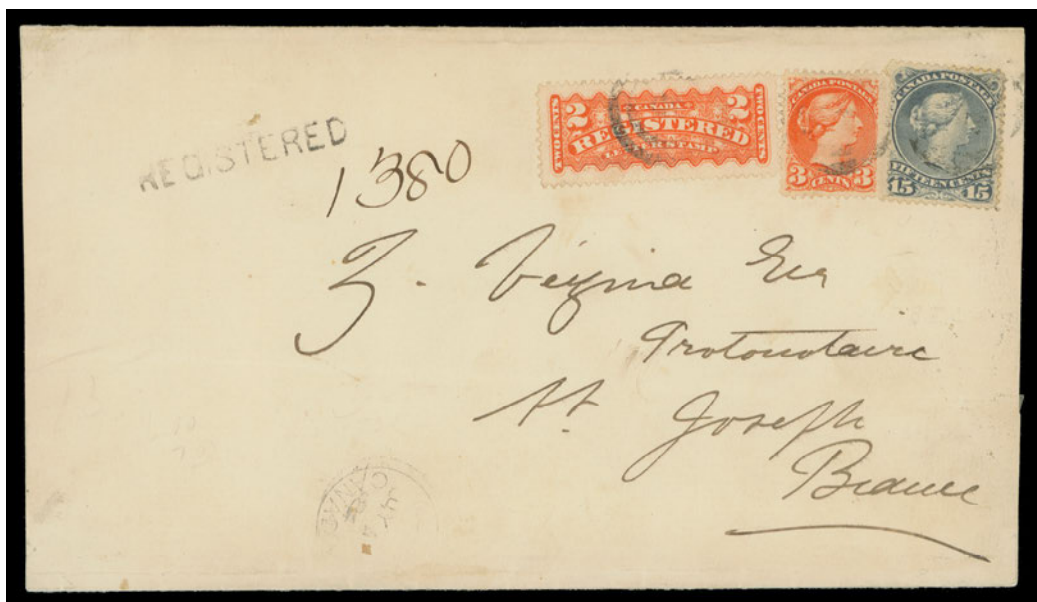 REGISTERED
1380
TWO CENTS 2 CANADA 2 TWO CENTS
REGISTERED
LETTER STAMP
CANADA POSTAGE
3 CENTS 3
CANADA POSTAGE
FIFTEEN CENTS
15 15
Z. Vézina Esr
Protonotaire
St. Joseph
Beauce